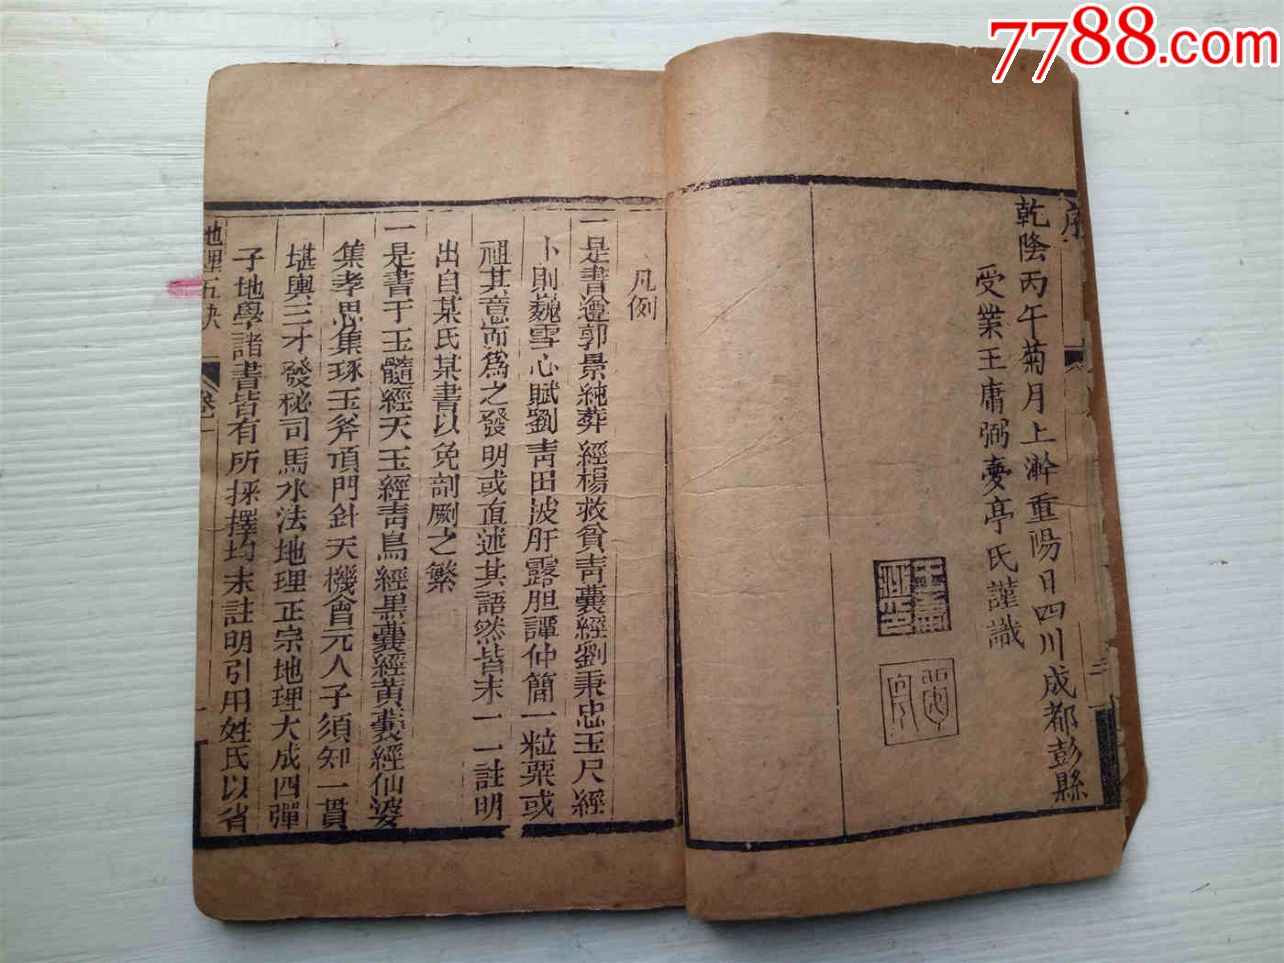 7788.com
序
乾隆丙午菊月上澣重陽日四川成都彭縣
受業王庸弼憂亭氏謹識
凡例
一是書遵郭景純葬經楊救貧青囊經劉秉忠玉尺經
卜則巍雪心賦劉青田披肝露胆譚仲簡一粒粟或
祖其意而為之發明或直述其語然皆未一一註明
出自某氏某書以免剞劂之繁
一是書于玉髓經天玉經青烏經黑囊經黃囊經仙婆
集孝思集琢玉斧頂門針天機會元人子須知一貫
堪輿三才發秘司馬水法地理正宗地理大成四彈
子地學諸書皆有所採擇均未註明引用姓氏以省
地理五訣
卷一